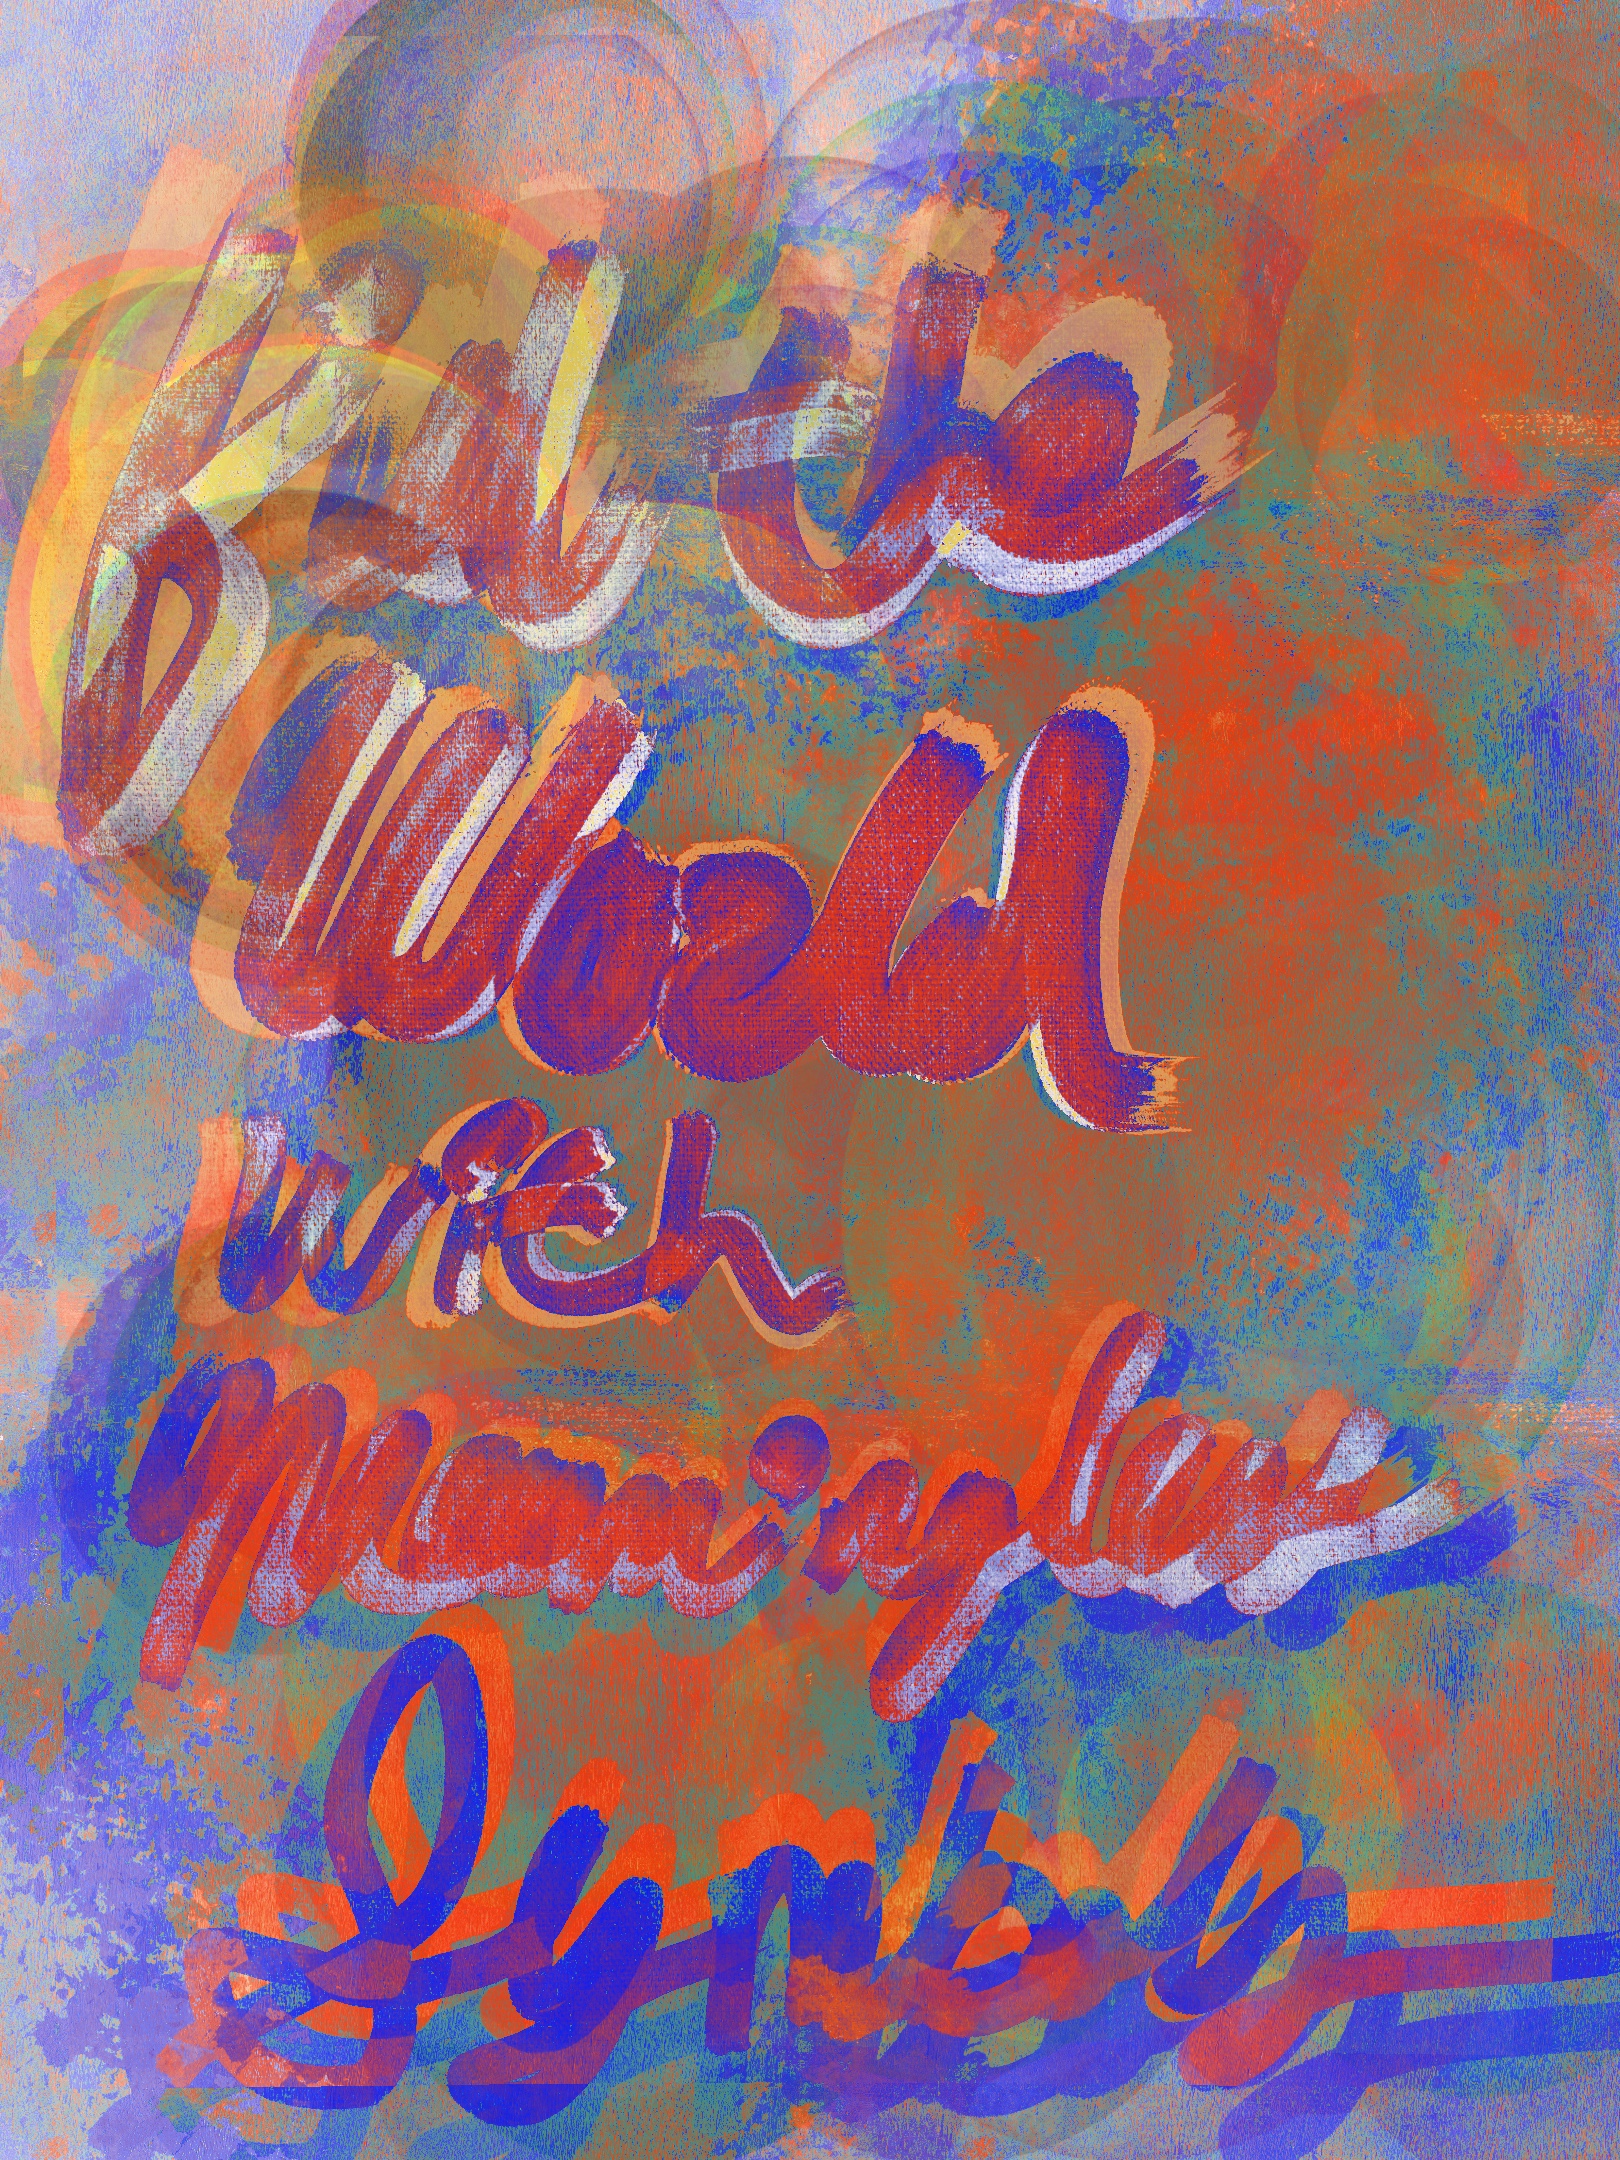 Fill the
World
with
Meaningless
Symbols